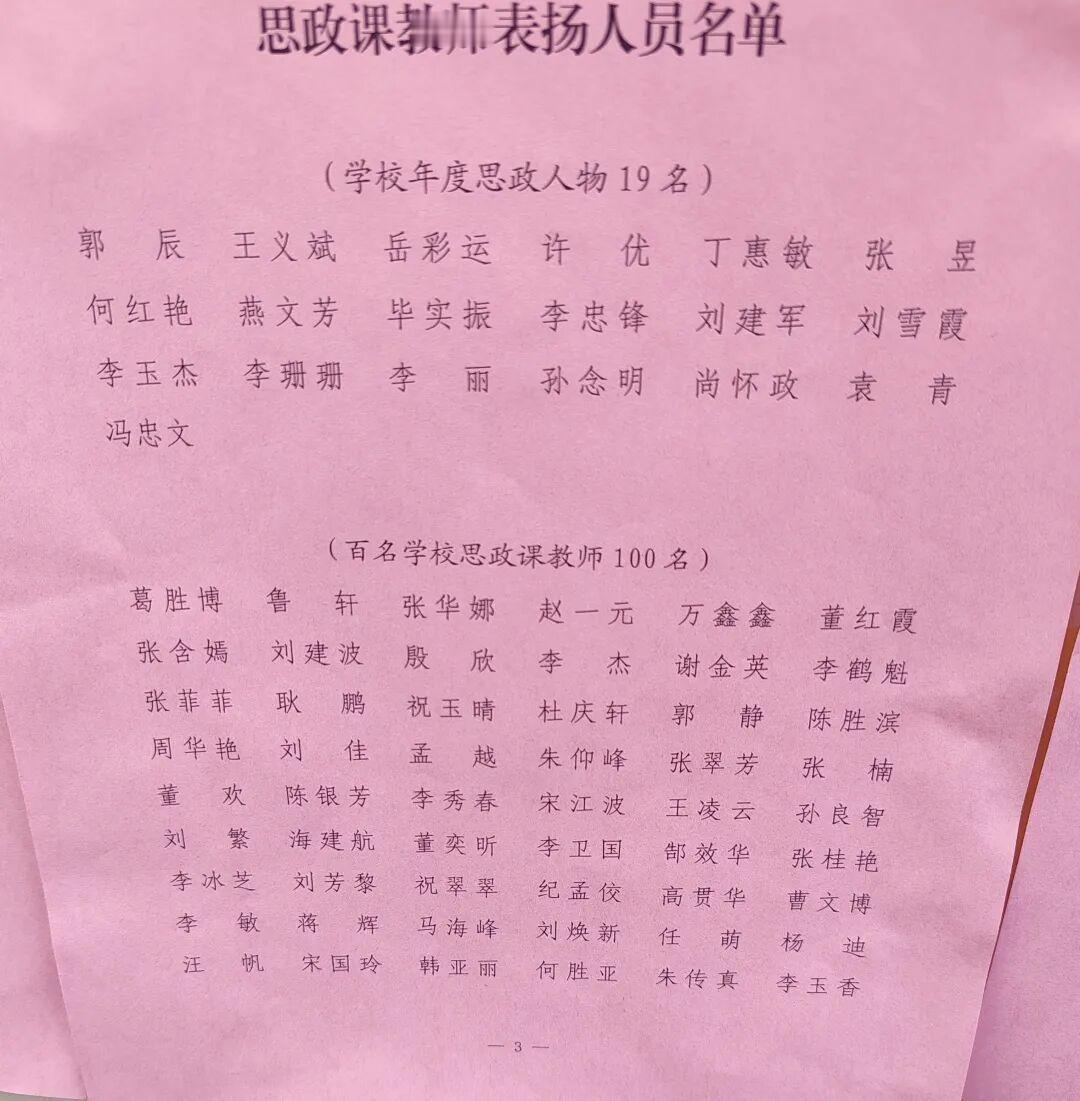 思政课教师表扬人员名单
（学校年度思政人物19名）
郭　辰 王义斌 岳彩运 许　优 丁惠敏 张　昱
何红艳 燕文芳 毕实振 李忠锋 刘建军 刘雪霞
李玉杰 李珊珊 李　丽 孙念明 尚怀政 袁　青
冯忠文
（百名学校思政课教师100名）
葛胜博 鲁　轩 张华娜 赵一元 万鑫鑫 董红霞
张含嫣 刘建波 殷　欣 李　杰 谢金英 李鹤魁
张菲菲 耿　鹏 祝玉晴 杜庆轩 郭　静 陈胜滨
周华艳 刘　佳 孟　越 朱仰峰 张翠芳 张　楠
董　欢 陈银芳 李秀春 宋江波 王凌云 孙良智
刘　繁 海建航 董奕昕 李卫国 郜效华 张桂艳
李冰芝 刘芳黎 祝翠翠 纪孟佼 高贯华 曹文博
李　敏 蒋　辉 马海峰 刘焕新 任　萌 杨　迪
汪　帆 宋国玲 韩亚丽 何胜亚 朱传真 李玉香
— 3 —